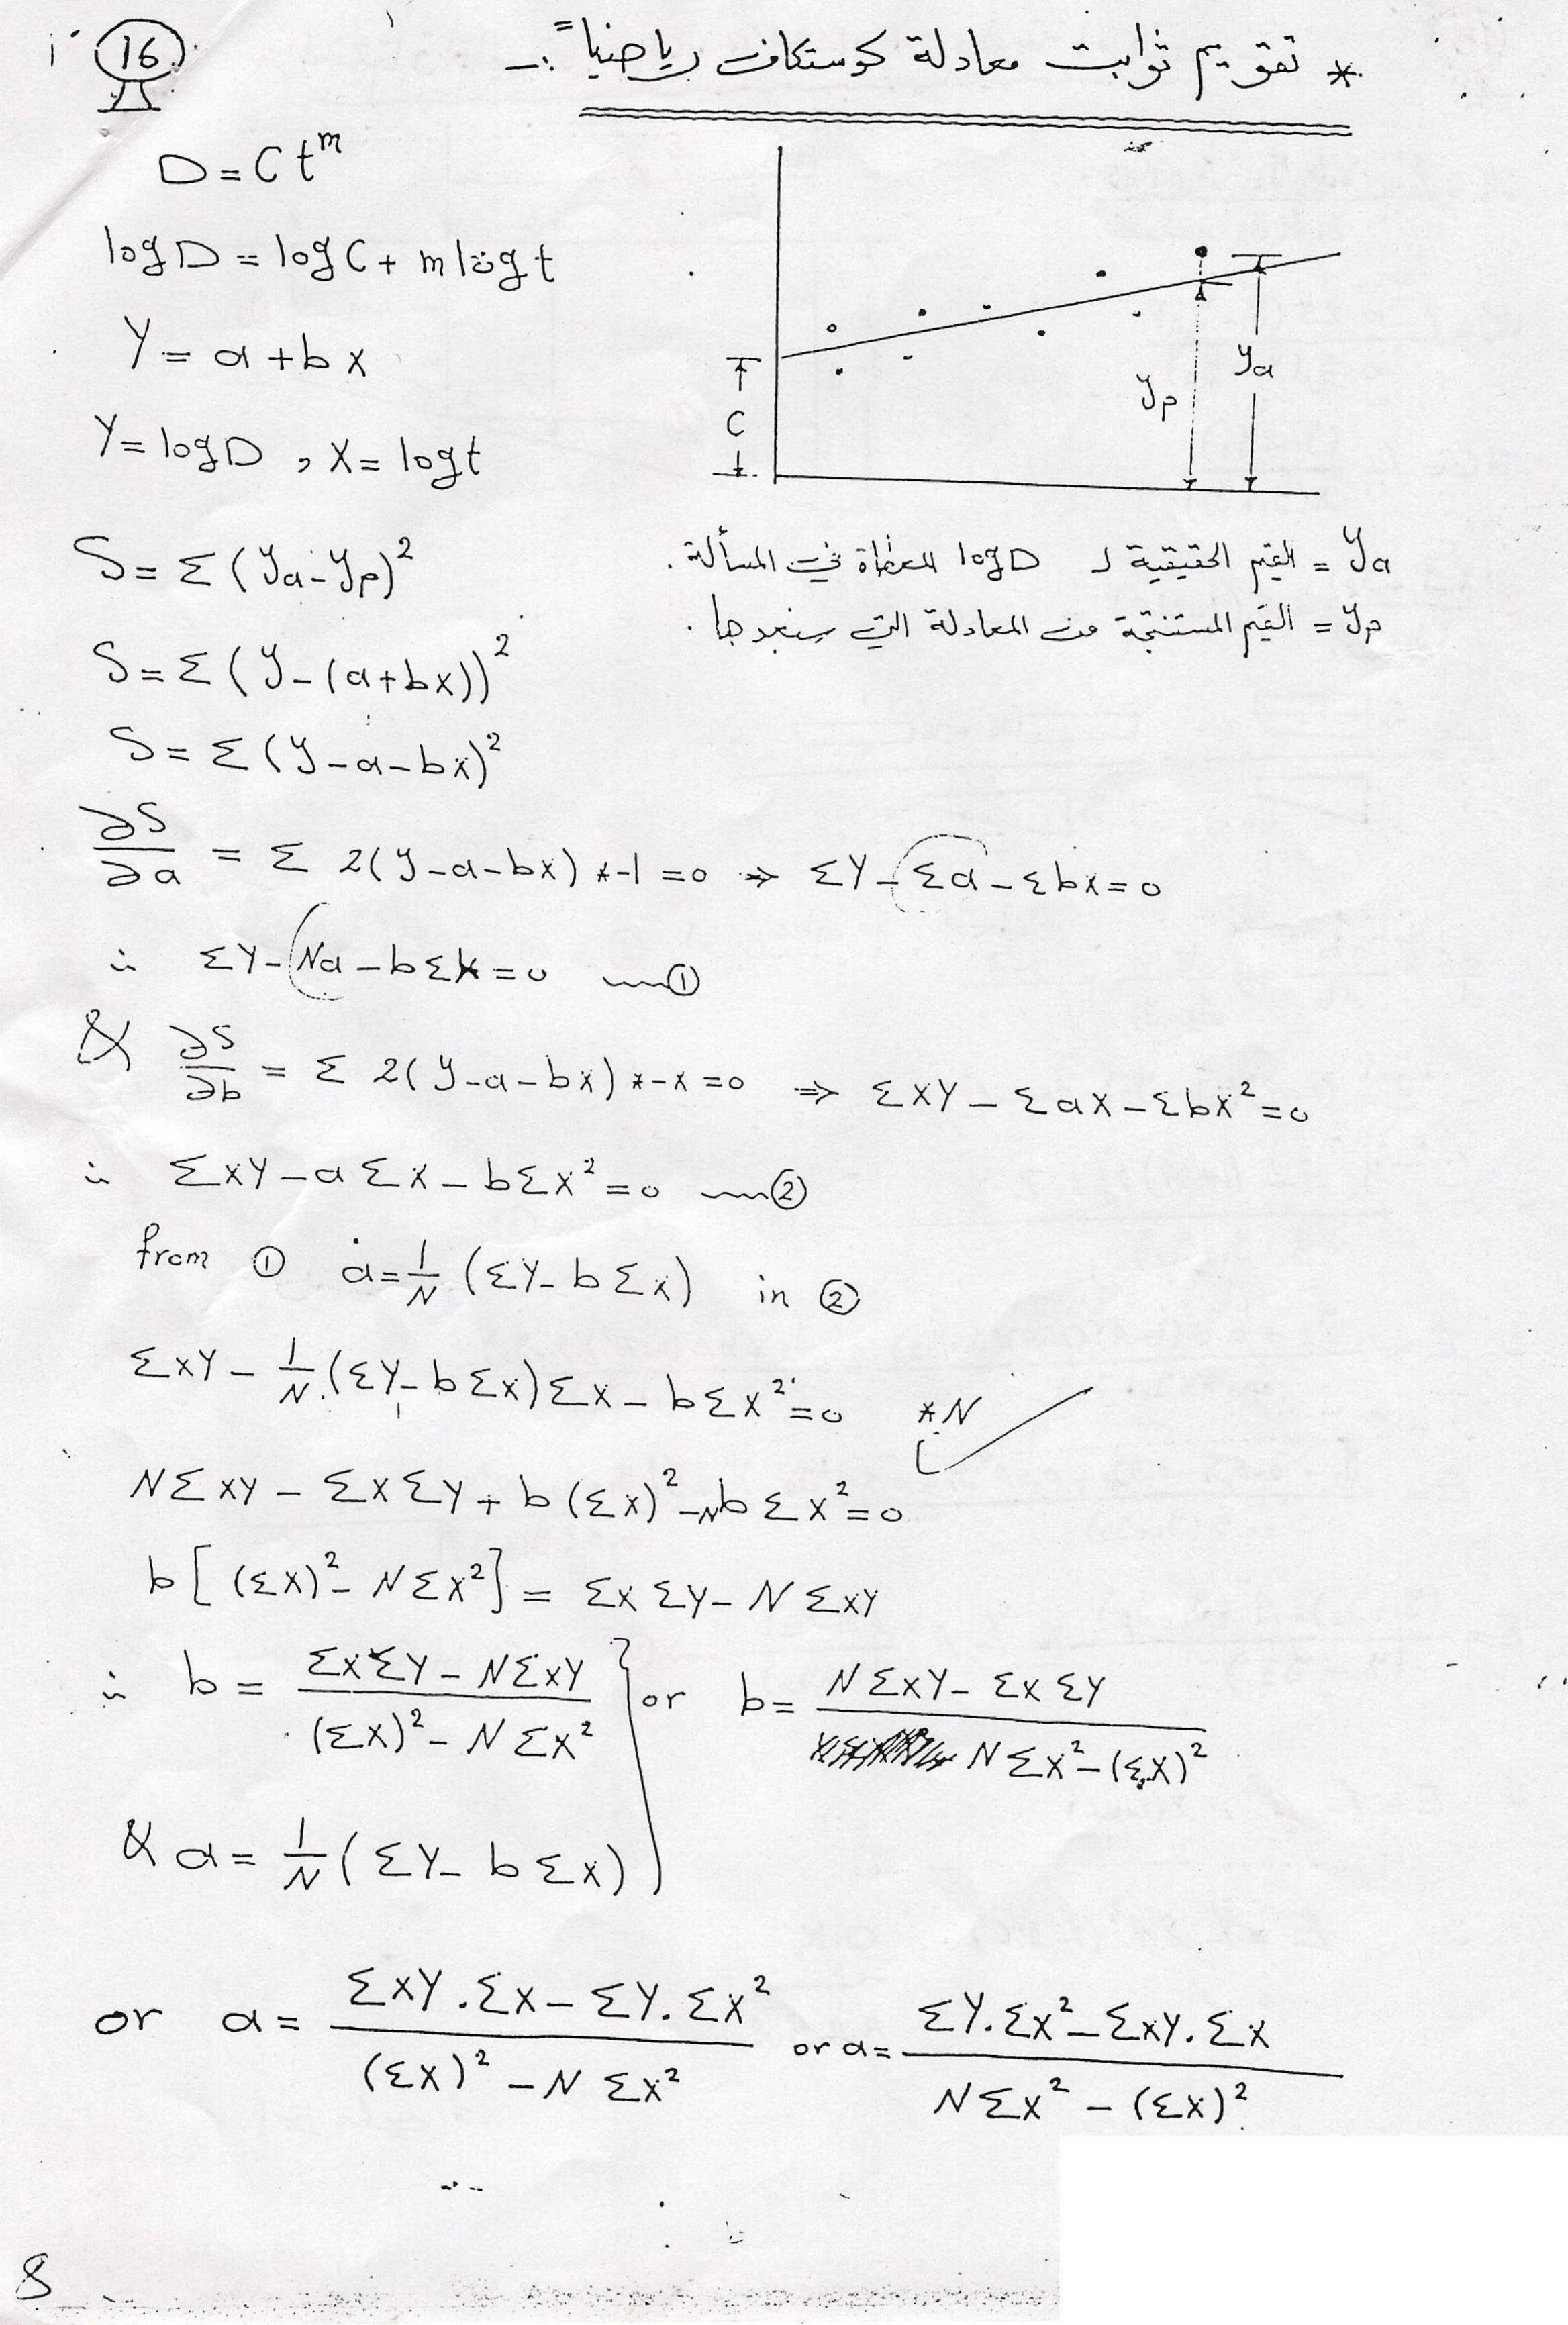 16
* تقويم ثوابت معادلة كوستكاف رياضياً :-
D = C t^m
log D = log C + m log t
Y = a + b x
Y = log D , X = log t
C
yp
ya
ya = القيم الحقيقية لـ log D المعطاة في المسألة .
yp = القيم المستنتجة من المعادلة التي سنجدها .
S = Σ (ya - yp)²
S = Σ (y - (a + bx))²
S = Σ (y - a - bx)²
∂S/∂a = Σ 2(y - a - bx) * -1 = 0 ⇒ ΣY - Σa - Σbx = 0
∴ ΣY - Na - bΣx = 0 ① 
& ∂S/∂b = Σ 2(y - a - bx) * -x = 0 ⇒ ΣXY - ΣaX - ΣbX² = 0
∴ ΣXY - aΣX - bΣX² = 0 ②
from ① a = 1/N (ΣY - bΣx) in ②
ΣXY - 1/N (ΣY - bΣx) Σx - bΣx² = 0 *N
NΣXY - ΣXΣY + b(Σx)² - NbΣx² = 0
b[(Σx)² - NΣx²] = ΣxΣy - NΣxy
∴ b = (ΣXΣY - NΣXY) / ((ΣX)² - NΣX²) } or b = (NΣXY - ΣXΣY) / (NΣX² - (ΣX)²)
& a = 1/N (ΣY - bΣx)
or a = (ΣXY . ΣX - ΣY . ΣX²) / ((ΣX)² - NΣX²) or a = (ΣY . ΣX² - ΣXY . ΣX) / (NΣX² - (ΣX)²)
8